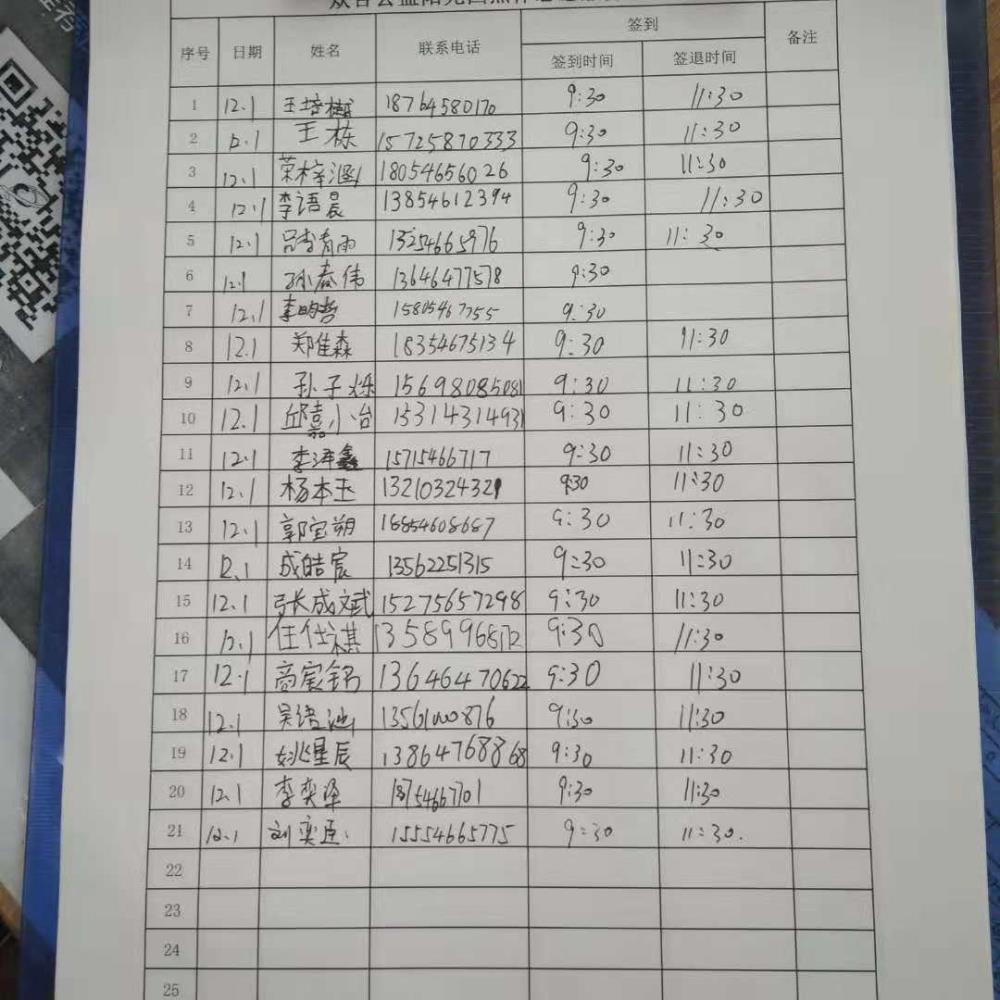 序号 日期 姓名 联系电话 签到 备注
签到时间 签退时间
1 12.1 王培樾 18764580170 9:30 11:30
2 12.1 王栋 15725870333 9:30 11:30
3 12.1 荣梓涵 18054656026 9:30 11:30
4 12.1 李语晨 13854612394 9:30 11:30
5 12.1 13254665976 9:30 11:30
6 12.1 孙春伟 13646477578 9:30
7 12.1 李昀哲 15805467755 9:30
8 12.1 郑佳森 18354675134 9:30 11:30
9 12.1 孙子烁 15698085081 9:30 11:30
10 12.1 邱嘉小台 15314314931 9:30 11:30
11 12.1 李泽鑫 15715466717 9:30 11:30
12 12.1 杨本玉 13210324321 9:30 11:30
13 12.1 郭宝朔 18854608687 9:30 11:30
14 12.1 成皓宸 13562251315 9:30 11:30
15 12.1 张成斌 15275657298 9:30 11:30
16 12.1 任仕祺 13589968172 9:30 11:30
17 12.1 高宸铭 13646470622 9:30 11:30
18 12.1 吴语池 9:30 11:30
19 12.1 姚星辰 13864768868 9:30 11:30
20 12.1 李奕泽 18754667701 9:30 11:30
21 12.1 刘奕臣 15554665775 9:30 11:30.
22
23
24
25